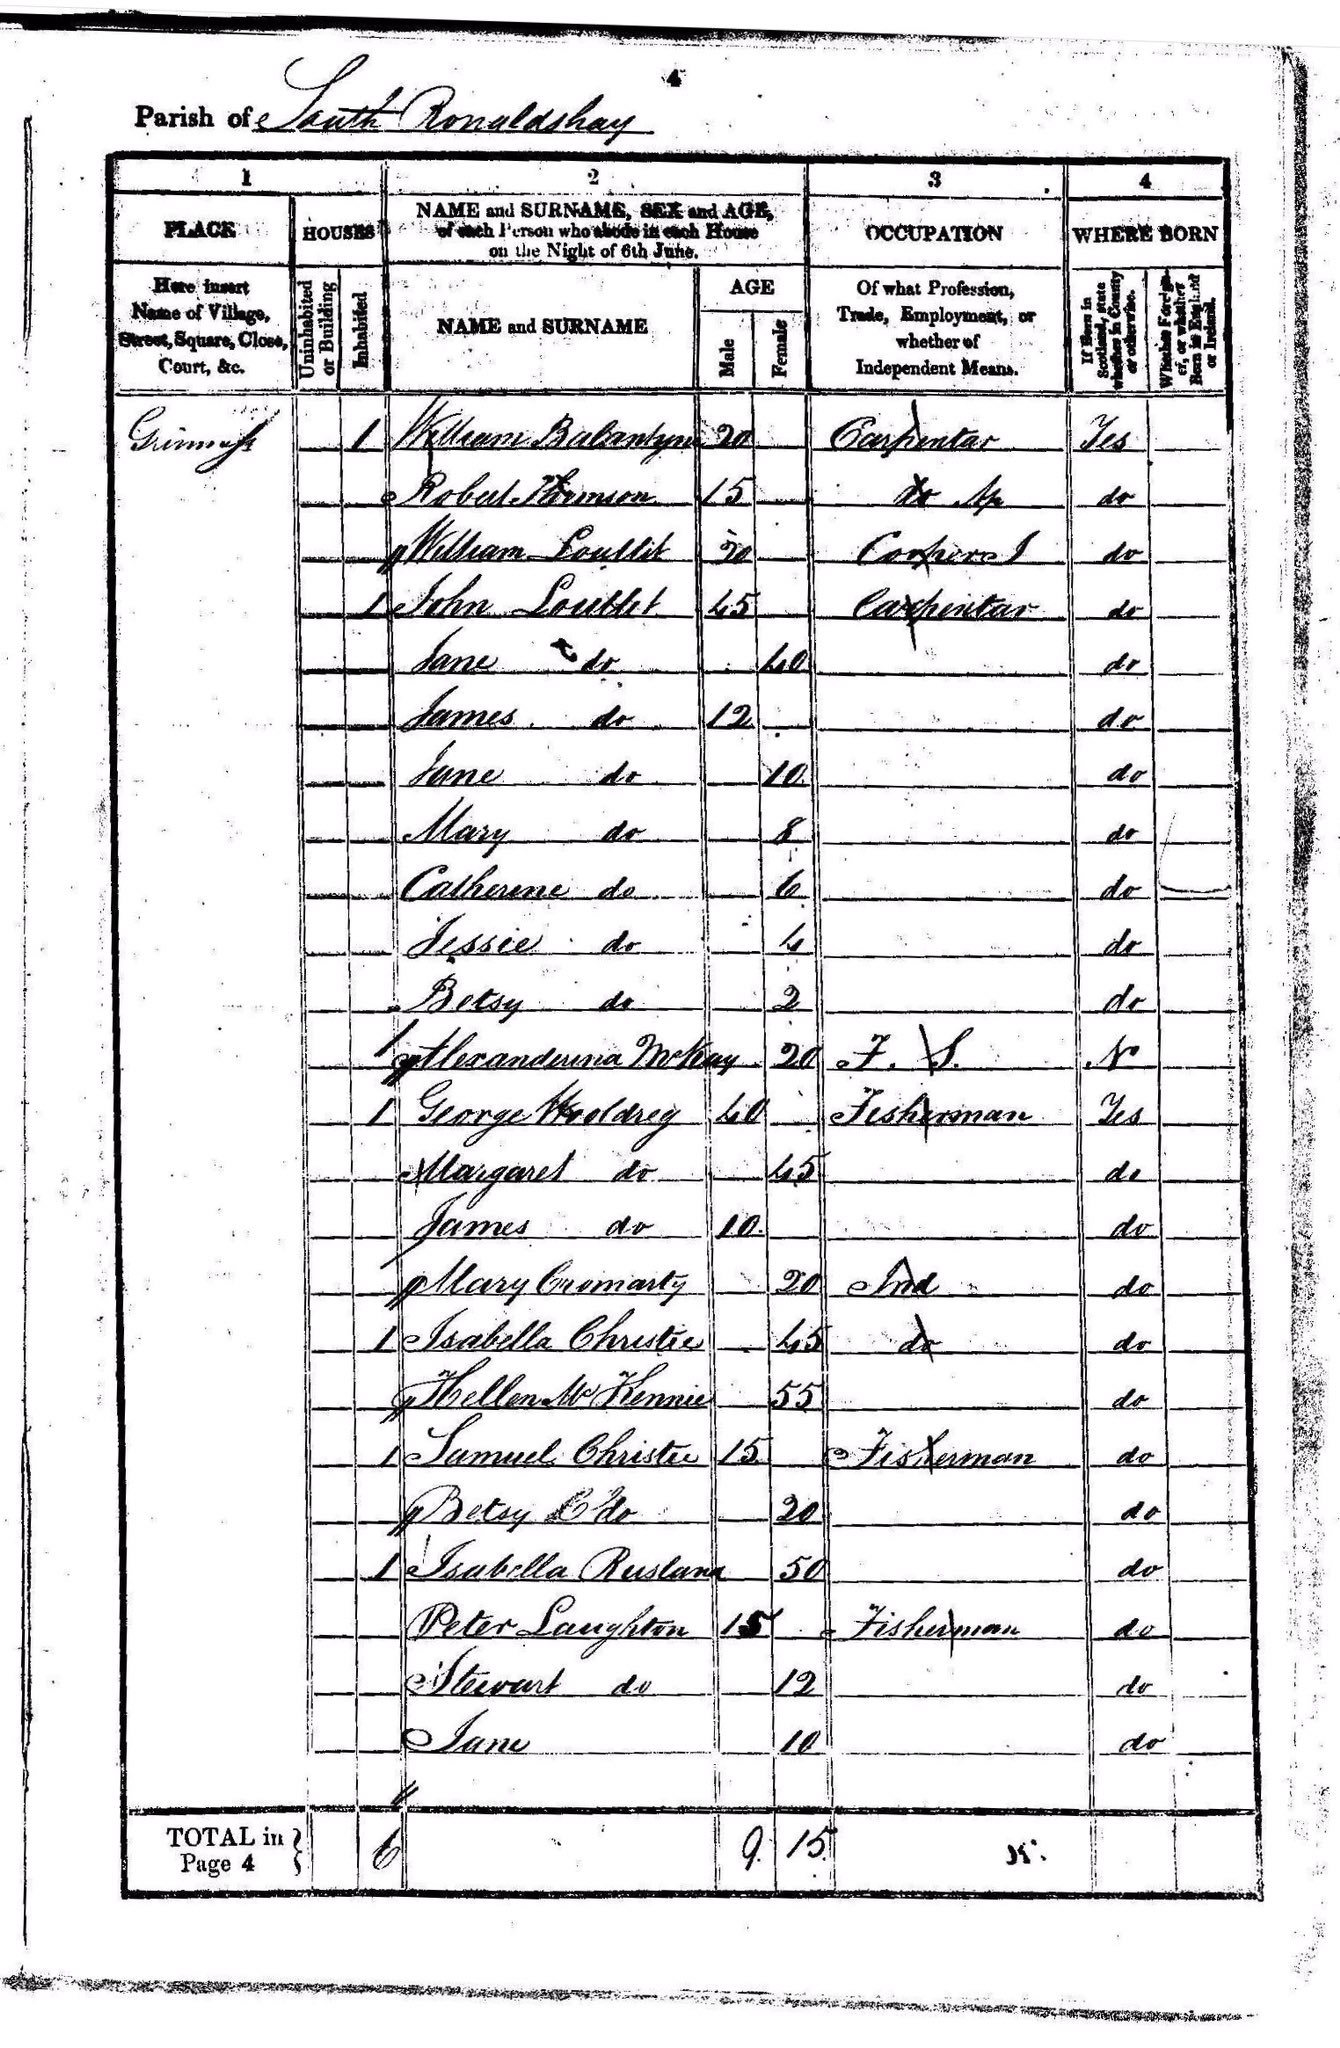 4
Parish of South Ronaldshay
1 2 3 4
PLACE HOUSES NAME and SURNAME, SEX and AGE, of each Person who abode in each House on the Night of 6th June. OCCUPATION WHERE BORN
Here insert Name of Village, Street, Square, Close, Court, &c. Uninhabited or Building Inhabited NAME and SURNAME AGE Male Female Of what Profession, Trade, Employment, or whether of Independent Means. If Born in Scotland, state whether in County or otherwise. Whether Foreigner, or whether Born in England or Ireland.
Grimness 1 William Balantyne 20 Carpentar Yes
Robert 15 do Ap do
William Louttit 20 J do
1 John Louttit 45 Carpentar do
Jane do 40 do
James do 12 do
Jane do 10 do
Mary do 8 do
Catherine do 6 do
Jessie do 4 do
Betsy do 2 do
1 Alexanderina McKay 20 F. S. N
1 George Wooldreg 40 Fisherman Yes
Margaret do 45 do
James do 10 do
Mary Cromarty 20 Ind do
1 Isabella Christie 45 do do
Hellen Mc Kennie 55 do
1 Samuel Christie 15 Fisherman do
Betsy do 20 do
1 Isabella Rusland 50 do
Peter Laughton 15 Fisherman do
Stewart do 12 do
Jane 10 do
TOTAL in Page 4 } 6 9 15